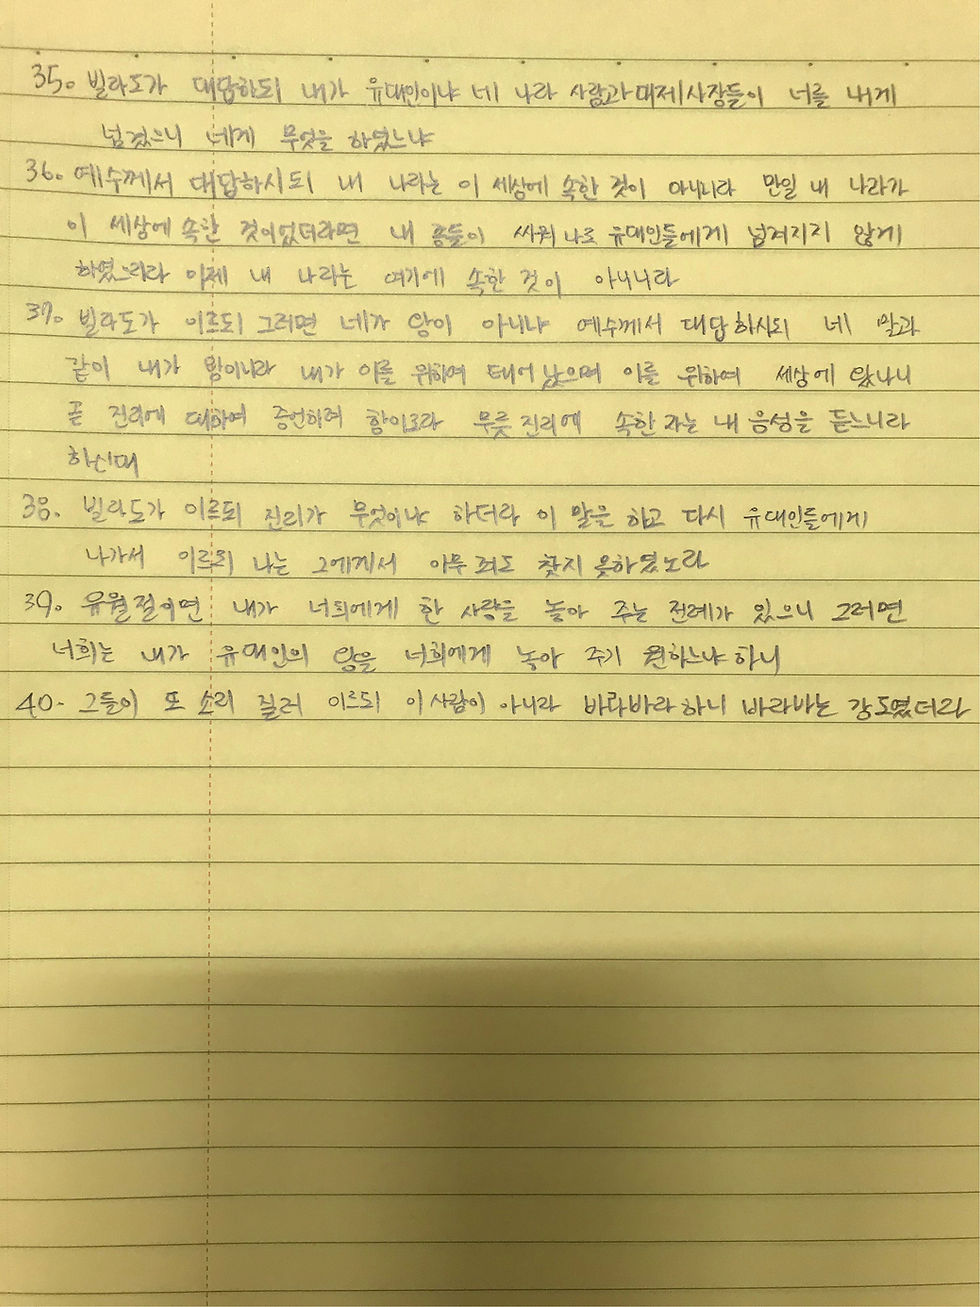 35. 빌라도가 대답하되 내가 유대인이냐 네 나라 사람과 대제사장들이 너를 내게
넘겼으니 네게 무엇을 하였느냐
36. 예수께서 대답하시되 내 나라는 이 세상에 속한 것이 아니니라 만일 내 나라가
이 세상에 속한 것이었더라면 내 종들이 싸워 나로 유대인들에게 넘겨지지 않게
하였으리라 이제 내 나라는 여기에 속한 것이 아니니라
37. 빌라도가 이르되 그러면 네가 왕이 아니냐 예수께서 대답하시되 네 말과
같이 내가 왕이니라 내가 이를 위하여 태어났으며 이를 위하여 세상에 왔나니
곧 진리에 대하여 증언하려 함이로라 무릇 진리에 속한 자는 내 음성을 듣느니라
하신대
38. 빌라도가 이르되 진리가 무엇이냐 하더라 이 말을 하고 다시 유대인들에게
나가서 이르되 나는 그에게서 아무 죄도 찾지 못하였노라
39. 유월절이면 내가 너희에게 한 사람을 놓아 주는 전례가 있으니 그러면
너희는 내가 유대인의 왕을 너희에게 놓아 주기 원하느냐 하니
40. 그들이 또 소리 질러 이르되 이 사람이 아니라 바라바라 하니 바라바는 강도였더라